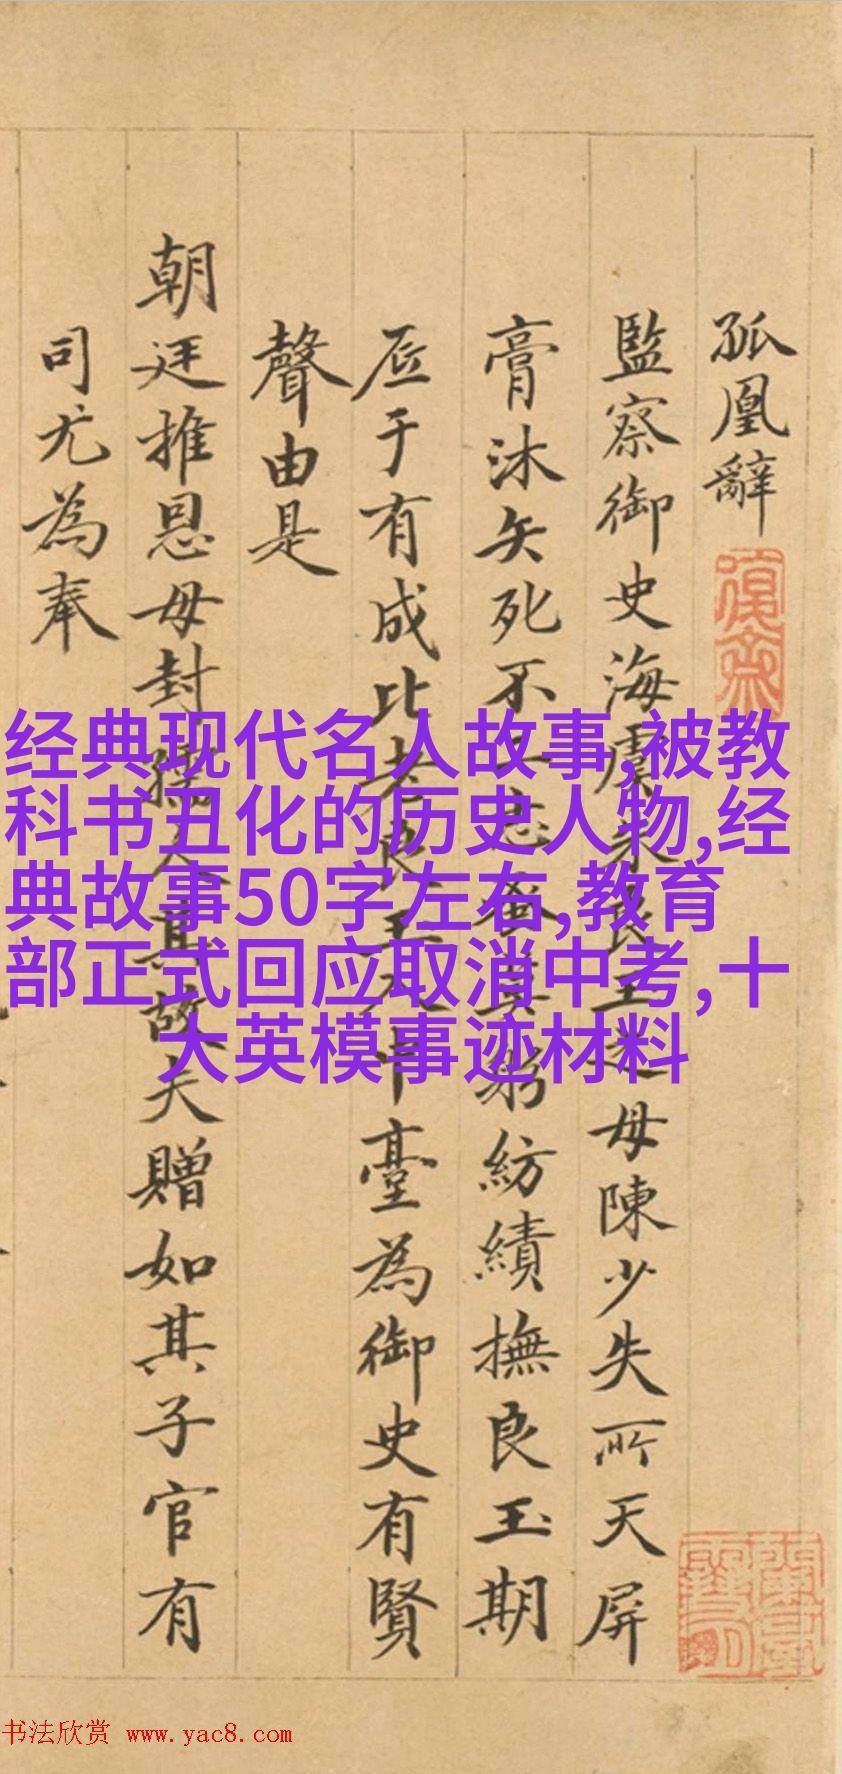 孤凰辭
監察御史海虞朱良玉母陳少失所天屏
膏沐矢死不二志蚤躬紡績撫良玉期
厎于有成比老良玉中臺為御史有賢
聲由是
朝廷推恩母封孺人其故夫贈如其子官有
司尤為奉
经典现代名人故事,被教
科书丑化的历史人物,经
典故事50字左右,教育
部正式回应取消中考,十
大英模事迹材料
书法欣赏 www.yac8.com